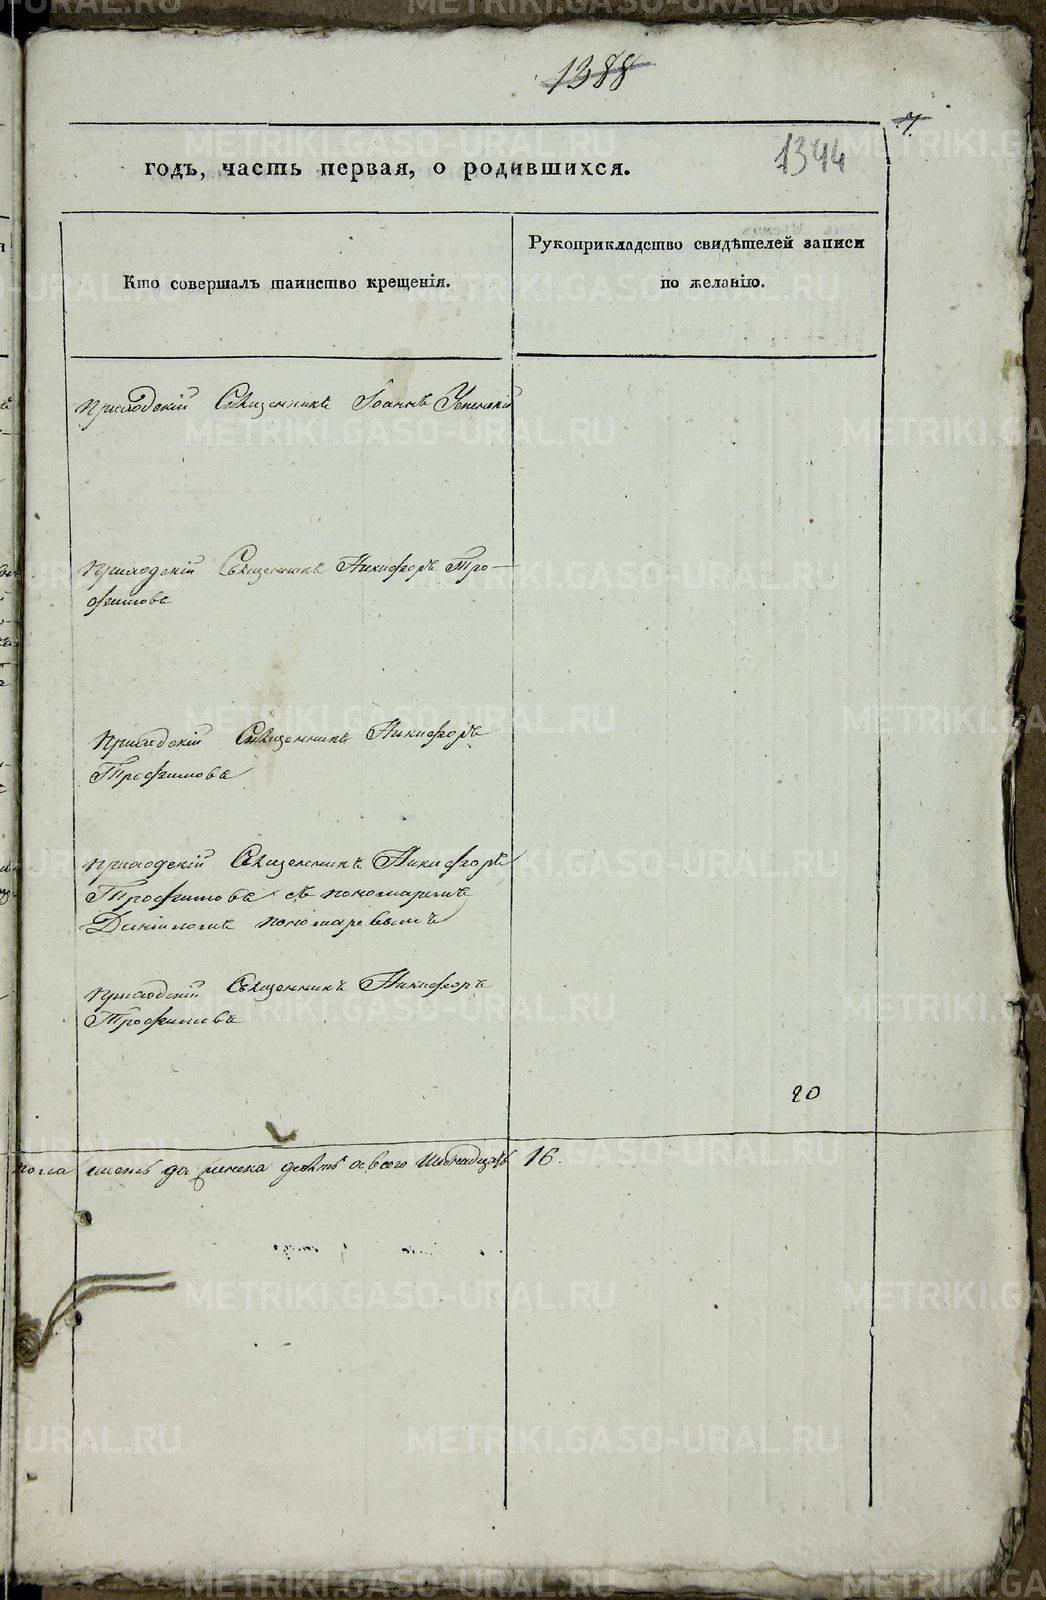 1388
7.
1394
годъ, часть первая, о родившихся.
Кто совершалъ таинство крещенія.
Рукоприкладство свидѣтелей записи
по желанію.
Приходскій Священникъ Іоаннъ Успенскій
Приходскій Священникъ Никифоръ Тро-
фимовъ
Приходскій Священникъ Никифоръ
Трофимовъ
Приходскій Священникъ Никифоръ
Трофимовъ съ пономаремъ
Даніиломъ Пономаревымъ
Приходскій Священникъ Никифоръ
Трофимовъ
20
пола да женска девять а всего Шестнадцать 16.
METRIKI.GASO-URAL.RU